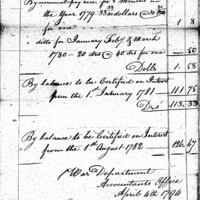 the Year 1779. 33 30/90 dollars @ 30
for one 1 8
ditto for January Feby & March
1780 — 20 drs @ 40 drs for one 50
Dolls 1. 58
By balance to be Certified on Interest
from the 1st January 1781 111 75
Drs 113. 33
By balance to be Certified on Interest
from the 1st August 1782 — 126. 67
War Department
Accountants Office
April 4th 1794